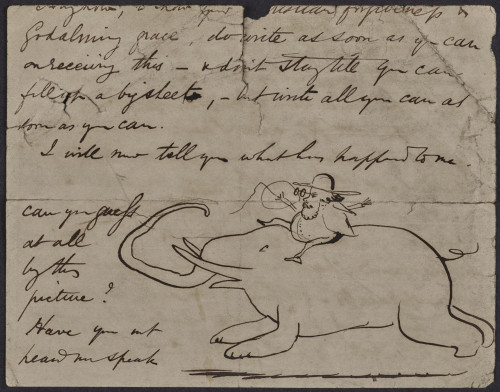 know your forgiveness &
Godalming grace, do write as soon as you can
on receiving this – & don't stay till you can
fill up a big sheet, – but write all you can as
soon as you can.
I will now tell you what has happened to me.
can you guess
at all
by this
picture?
Have you not
heard me speak